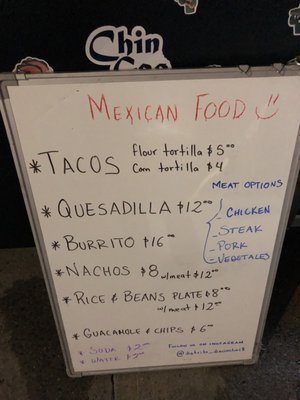 Chin
MEXICAN FOOD
* TACOS Flour tortilla $5.00
Corn tortilla $4
MEAT OPTIONS
* QUESADILLA $12.00
- CHICKEN
- STEAK
- PORK
- VEGETALES
* BURRITO $16.00
* NACHOS $8 w/meat $12.00
* RICE & BEANS PLATE $8.00
w/meat $12.00
* GUACAMOLE & CHIPS $6.00
* SODA $2.00
* WATER $2.00
FOLLOW US ON INSTAGRAM